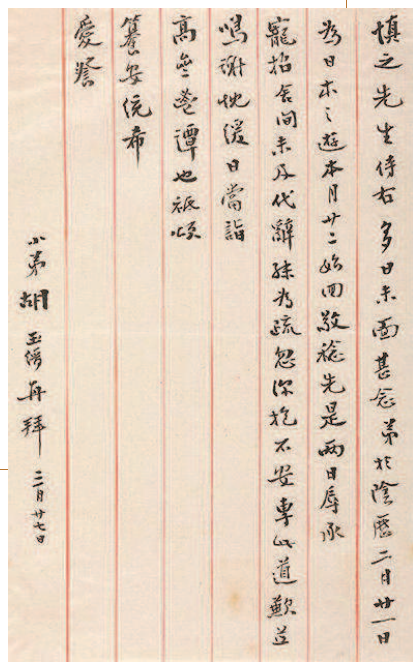 慎之先生侍右多日未面甚念弟於陰曆二月廿一日
為日本之遊本月廿二始回敬稔先是兩日辱承
寵招舍間未及代辭殊為疏忽深抱不安專此道歉並
鳴謝忱緩日當詣
高譚也祗頌
籑安統希
愛詧
小弟胡玉縉再拜 三月廿七日